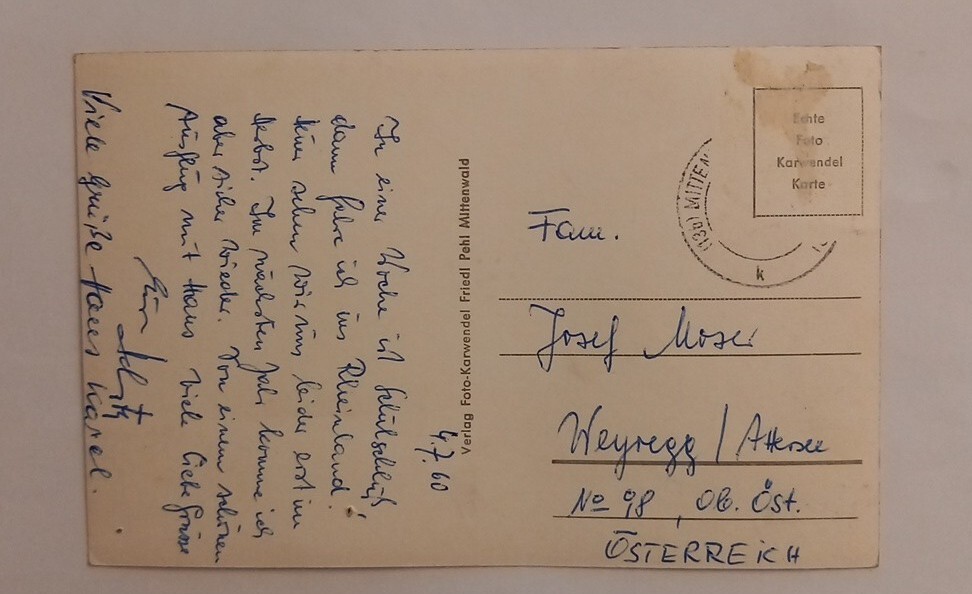 4.7.60
In einer Woche ist Schulschluß
dann fahre ich ins Rheinland!
sehen wir uns leider erst im
Herbst. Im nächsten Jahr komme ich
aber sicher wieder. Von einem schönen
Ausflug mit Hans viele liebe Grüsse
Viele Grüße Hans
Verlag Foto-Karwendel Friedl Pehl Mittenwald
Echte
Foto
Karwendel
Karte
(130) MITTEN
k
Fam.
Josef Moser
Weyregg / Attersee
No 98, Ob. Öst.
ÖSTERREICH